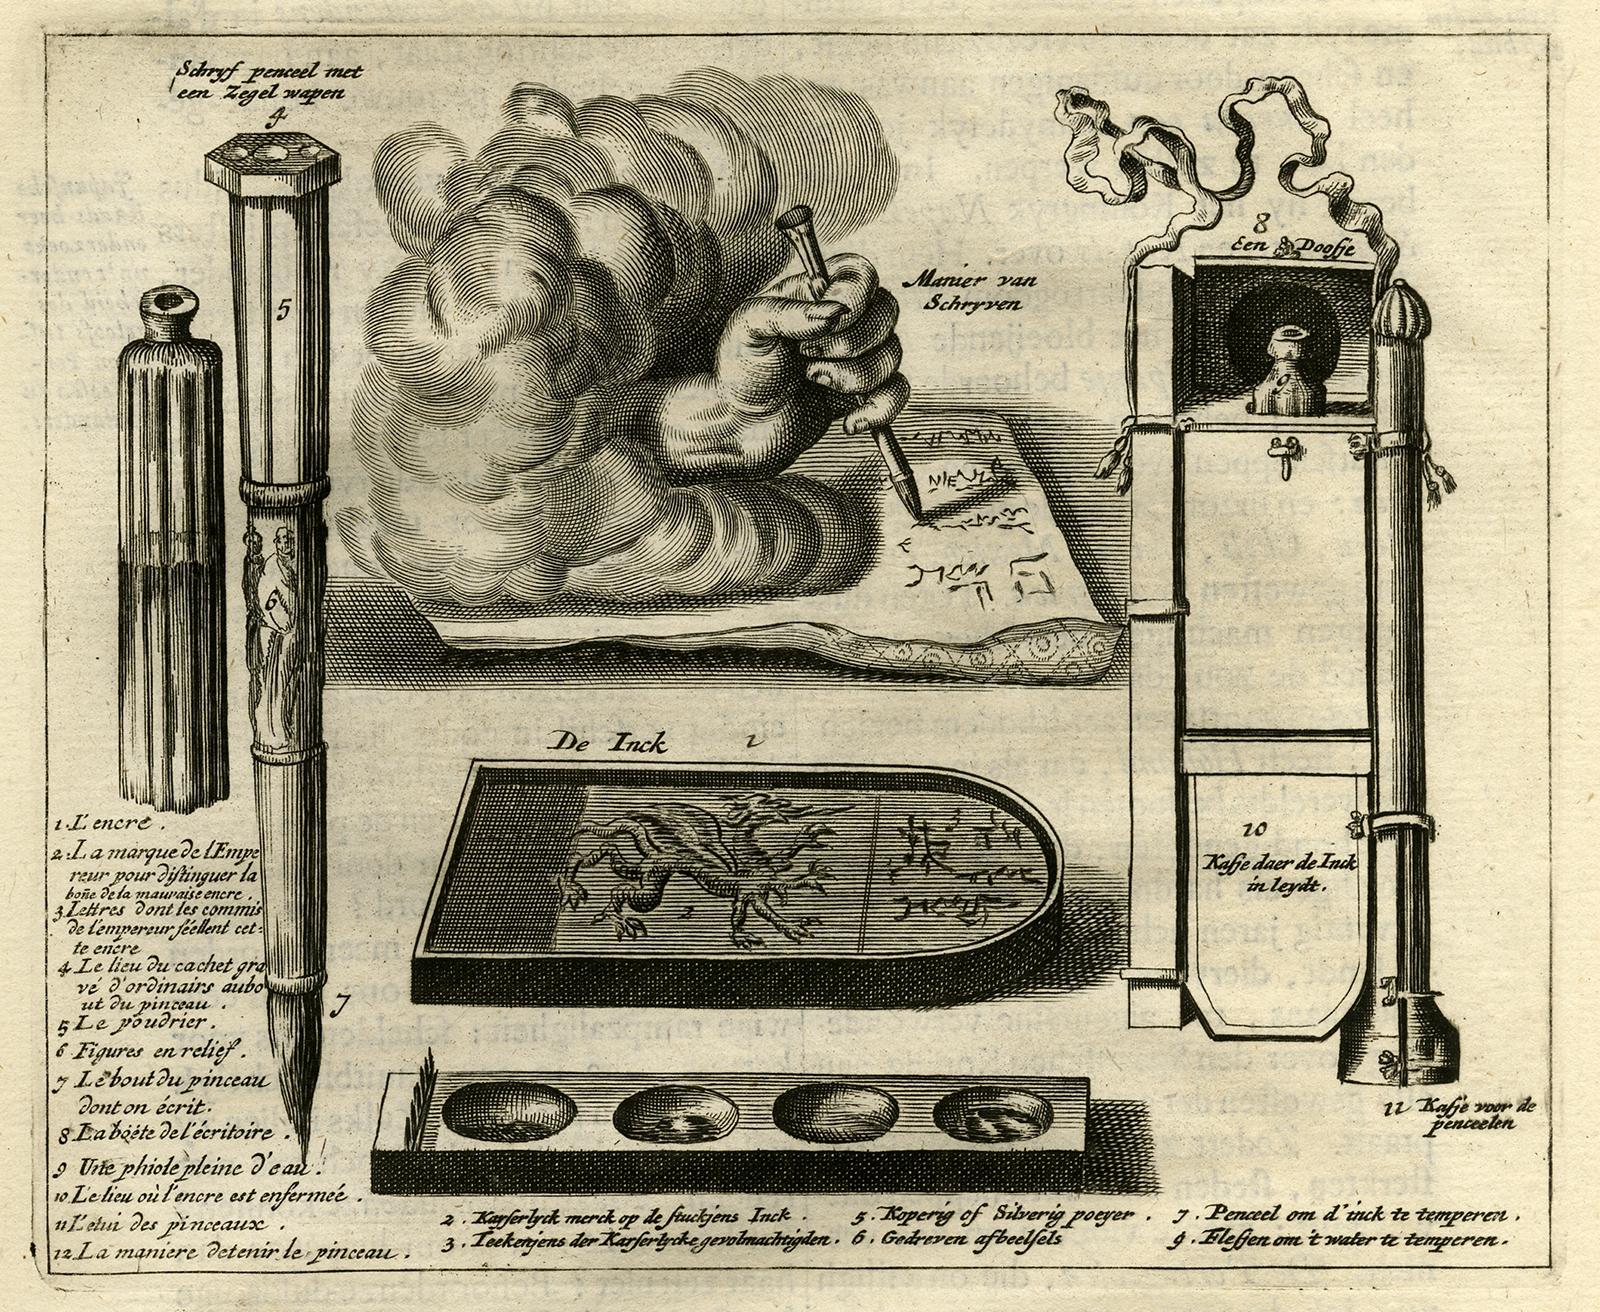 Schryf penceel met
een Zegel wapen
4
5
6
7
Manier van
Schryven
NIEUZ
8
Een Doosje
9
10
Kasje daer de Inck
in leydt.
11 Kasje voor de
penceelen
De Inck 1
2
3
1. L'encre.
2. La marque de l'Empe
reur pour distinguer la
boñe de la mauvaise encre.
3 Lettres dont les commis
de l'empereur séellent cet-
te encre
4 Le lieu du cachet gra
vé d'ordinairs aubo
ut du pinceau.
5 Le poudrier.
6 Figures en relief.
7 Le bout du pinceau
dont on écrit.
8 La boéte de l'écritoire.
9 Une phiole pleine d'eau.
10 Le lieu où l'encre est enfermeé.
11 L'etui des pinceaux.
12 La maniere detenir le pinceau.
2. Kayserlyck merck op de stuckjens Inck.
3. Teekenjens der Kayserlycke gevolmachtigden.
5. Koperig of Silverig poeyer.
6. Gedreven afbeelsels
7. Penceel om d'inck te temperen.
9. Flesjen om 't water te temperen.